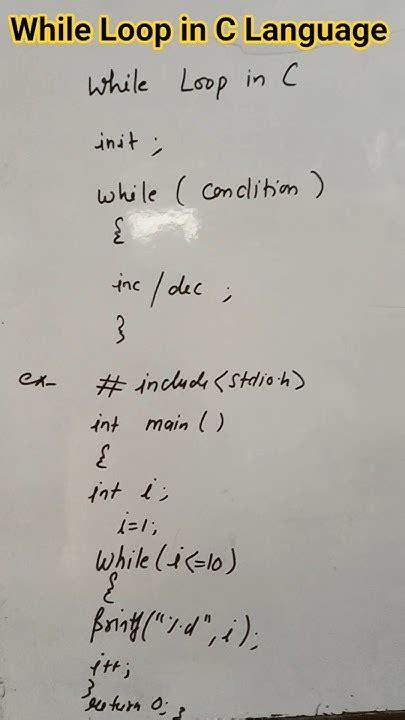 While Loop in C Language
While Loop in C
init ;
while ( condition )
{
inc / dec ;
}
ex- # include <stdio.h>
int main ( )
{
int i ;
i=1;
While (i<=10)
{
printf("%d", i);
i++;
}
return 0; }